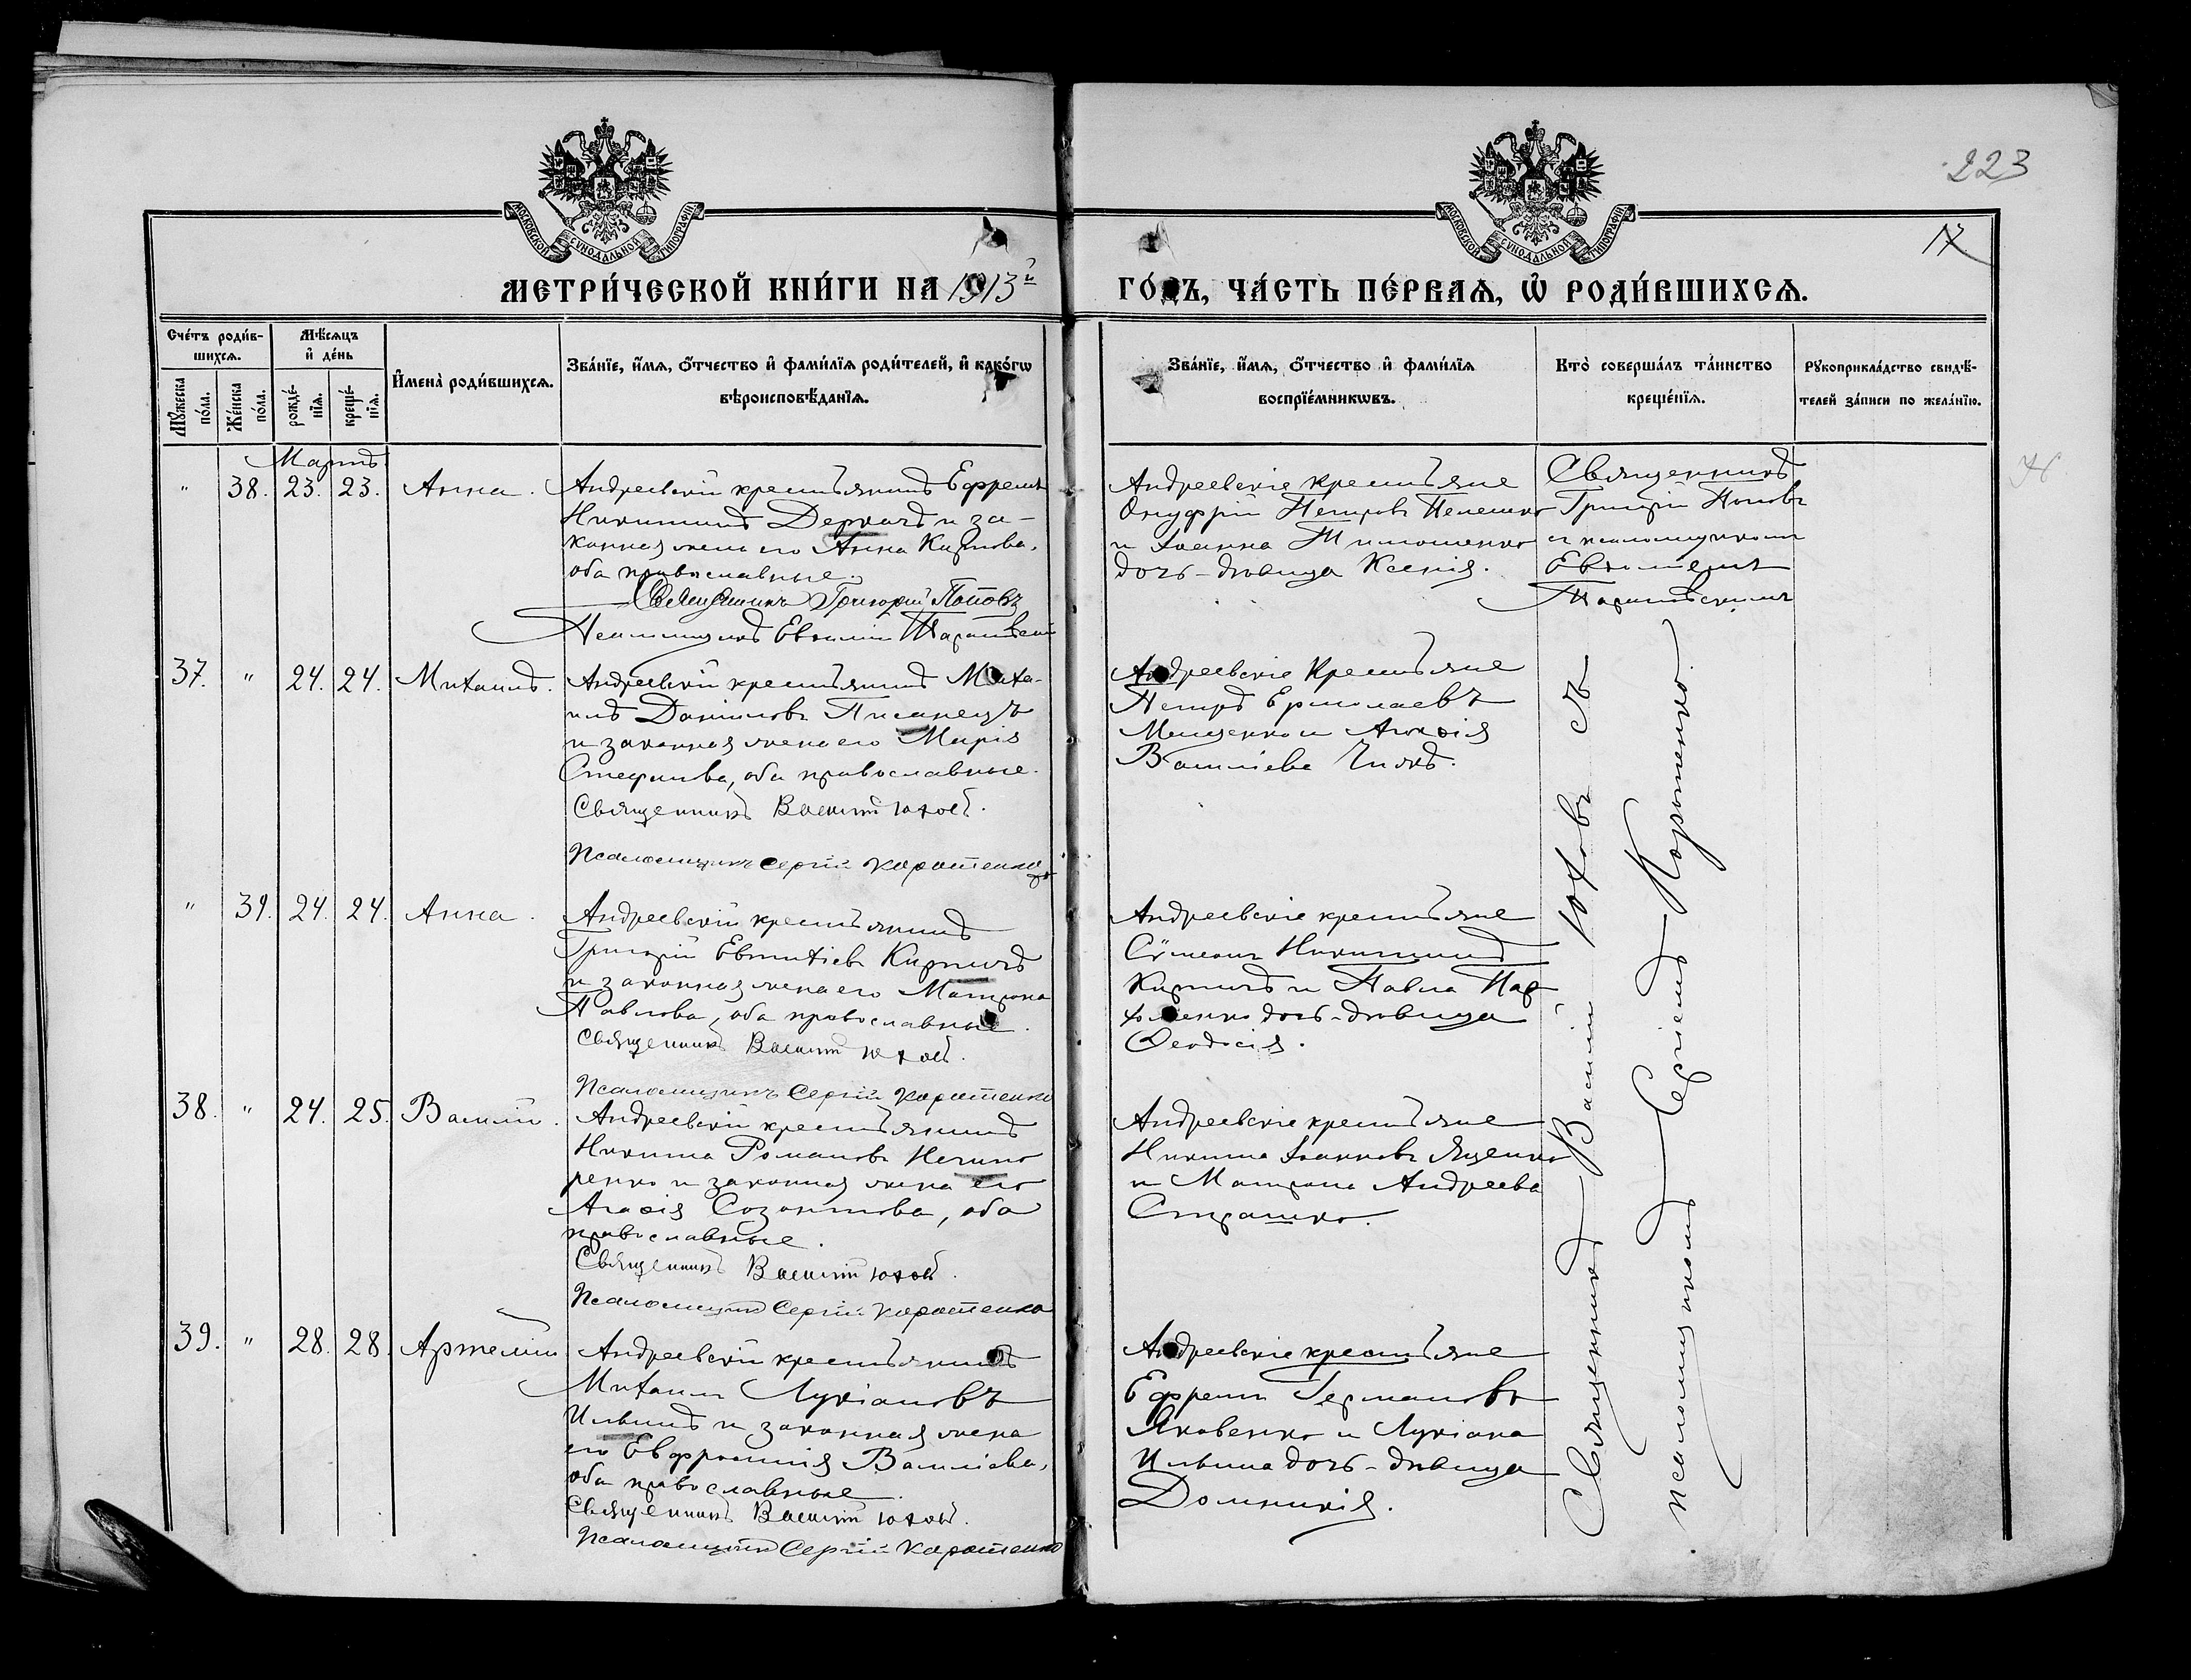 223
17
МОСКОВСКОЙ СѴНОДАЛЬНОЙ ТИПОГРАФІИ
МОСКОВСКОЙ СѴНОДАЛЬНОЙ ТИПОГРАФІИ
МЕТРИ́ЧЕСКОЙ КНИ́ГИ НА 1913й ГО́ДЪ, ЧА́СТЬ ПЕ́РВАѦ, Ѡ҆ РОДИ́ВШИХСѦ.
Сче́тъ роди́в-
шихсѧ.
Мꙋ́жеска по́ла.
Же́нска по́ла.
Мѣ́сѧцъ
и҆ де́нь
рожде́-
нїѧ.
креще́-
нїѧ.
И҆мена̀ роди́вшихсѧ.
Зва́нїе, и҆́мѧ, ѻ҆́тчество и҆ фами́лїѧ роди́телей, и҆ како́гѡ
вѣроисповѣ́данїѧ.
Зва́нїе, и҆́мѧ, ѻ҆́тчество и҆ фами́лїѧ
воспрїе́мникѡвъ.
Кто̀ соверша́лъ та́инство
креще́нїѧ.
Рꙋкоприкла́дство свидѣ́-
телей за́писи по жела́нїю.
Мартъ
" 38. 23. 23. Анна.
Андреевскій крестьянинъ Ефремъ
Никитинъ Деркачъ и за-
конная жена его Анна Карпова,
оба православные.
Священникъ Григорій Поповъ
Псаломщикъ Евѳимій
Андреевскіе крестьяне
Онуфрій Петровъ Пелешко
и Іоанна Тимошенко
дочь-дѣвица Ксенія.
Священникъ
Григорій Поповъ
съ псаломщикомъ
Евѳиміемъ
37. " 24. 24. Михаилъ.
Андреевскій крестьянинъ Миха-
илъ Даніиловъ Писанецъ
и законная жена его Марія
Стефанова, оба православные.
Священникъ Василій Юховъ.
Псаломщикъ Сергій Коротенко
Андреевскіе Крестьяне
Петръ Ермолаевъ
Мищенко и Агаѳія
Василіева
" 39. 24. 24. Анна.
Андреевскій крестьянинъ
Григорій Евтихіевъ Кирпичъ
и законная жена его Матрона
Павлова, оба православные.
Священникъ Василій Юховъ.
Псаломщикъ Сергій Коротенко
Андреевскіе крестьяне
Сѵмеонъ Никитинъ
Кирпичъ и Павла Пар-
хоменко дочь-дѣвица
Ѳеодосія.
38. " 24. 25. Василій.
Андреевскій крестьянинъ
Никита Романовъ Нечипо
ренко и законная жена его
Агаѳія Созонтова, оба
православные.
Священникъ Василій Юховъ.
Псаломщикъ Сергій Коротенко
Андреевскіе крестьяне
Никита Іоанновъ Яценко
и Матрона Андреева
Страшко.
39. " 28. 28. Артемій
Андреевскій крестьянинъ
Михаилъ Лукіановъ
Ильинъ и законная жена
его Евфросинія Василіева,
оба православные.
Священникъ Василій Юховъ.
Псаломщикъ Сергій Коротенко
Андреевскіе крестьяне
Ефремъ Германовъ
Яковенко и Лукіана
Ильина дочь-дѣвица
Домникія.
Священникъ Василій Юховъ съ
псаломщикомъ Сергіемъ Коротенко.